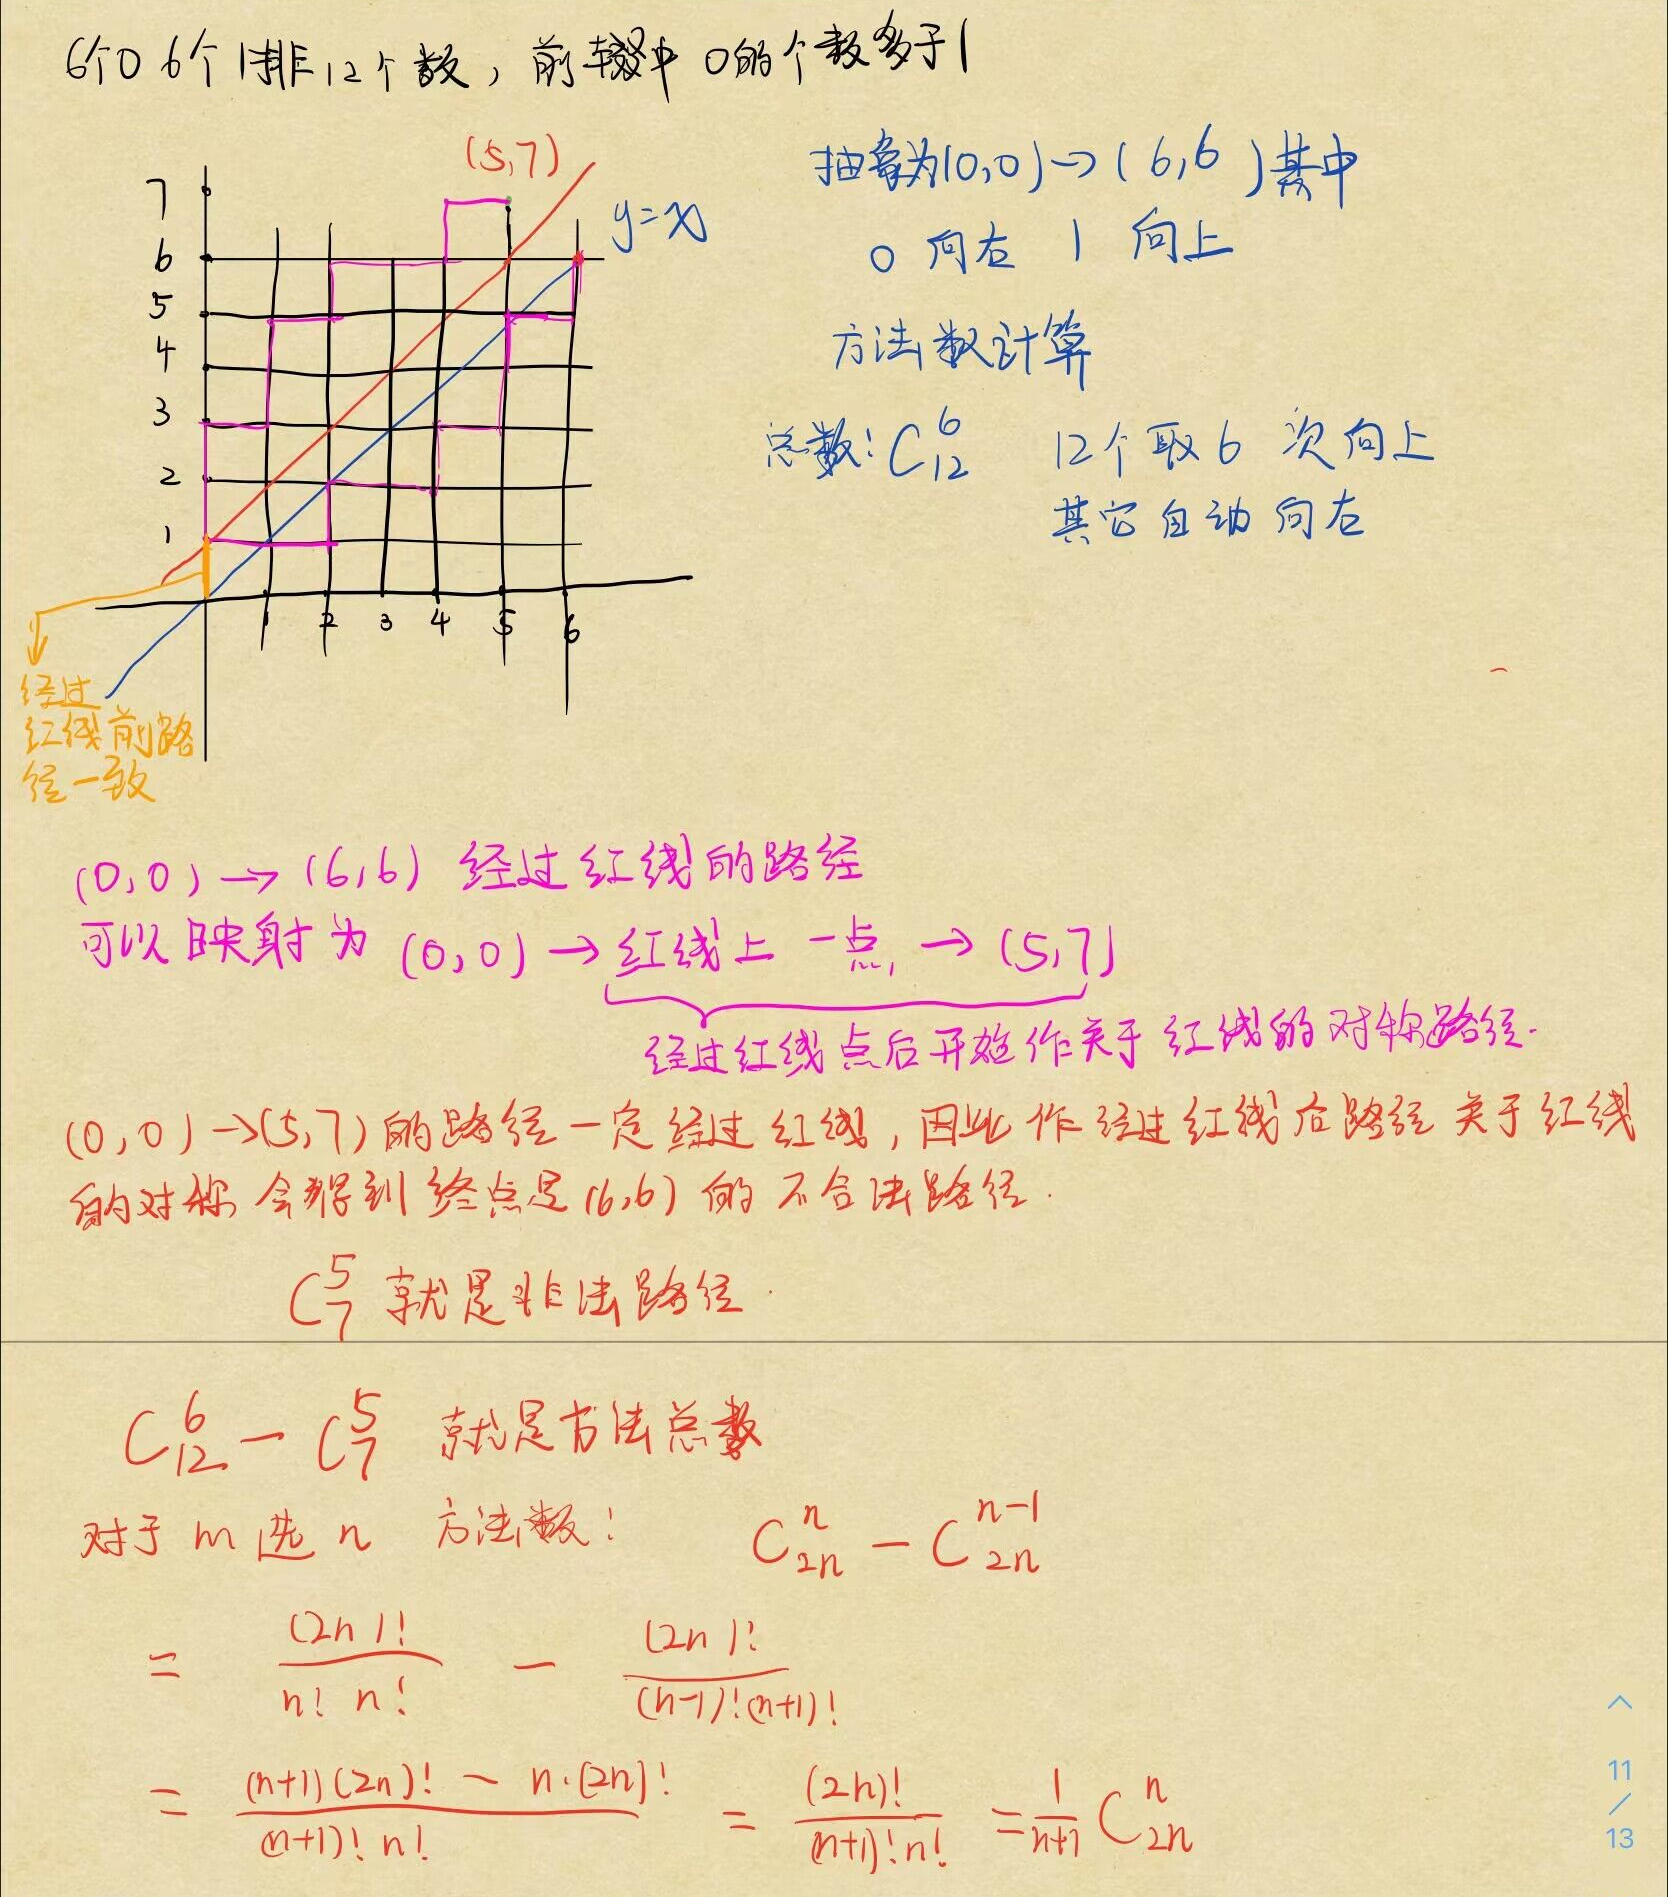 6个0 6个1排12个数，前缀中 0的个数多于1
(5,7)
y=x
7
6
5
4
3
2
1
1 2 3 4 5 6
抽象为(0,0)→(6,6)其中
0 向右 1 向上
方法数计算
总数: C₁₂⁶ 12个取6 次向上
其它自动向右
经过
红线前路
径一致
(0,0)→(6,6) 经过红线的路径
可以映射为 (0,0)→红线上一点→(5,7)
经过红线点后开始作关于红线的对称路径.
(0,0)→(5,7)的路径一定经过红线,因此作经过红线后路径关于红线
的对称 会得到终点是(6,6)的不合法路径.
C₇⁵ 就是非法路径.
C₁₂⁶ - C₇⁵ 就是方法总数
对于m选n 方法数: C₂ₙⁿ - C₂ₙⁿ⁻¹
= (2n)!/(n! n!) - (2n)!/((n-1)!(n+1)!)
= ((n+1)(2n)! - n·(2n)!)/((n+1)! n!) = (2n)!/((n+1)! n!) = 1/(n+1) C₂ₙⁿ
11
/
13